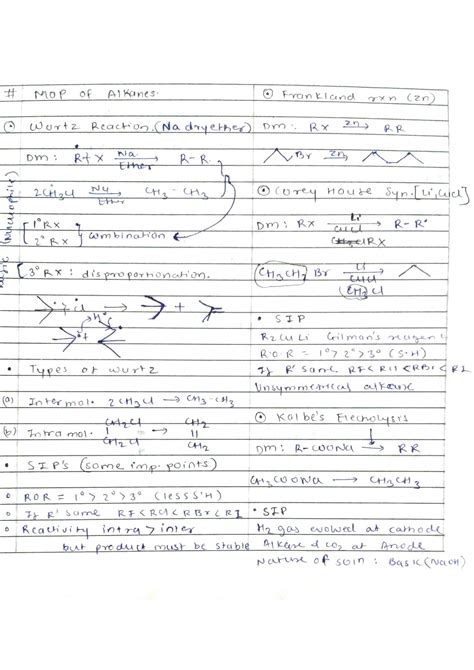 # MOP of Alkanes.
⊙ Wurtz Reaction. (Na dryether)
DM: R+X Na/Ether → R-R.
2CH3Cl Na/Ether → CH3-CH3
1° RX
2° RX } combination
3° RX : disproportionation.
(Nucleophile)
Cl → +
H
• Types of wurtz
(a) Intermol. 2CH3Cl → CH3-CH3
(b) Intramol. CH2Cl CH2Cl → CH2 = CH2
• SIP's (some imp. points)
o ROR = 1° > 2° > 3° (less S.H)
o If R' same RF<RCl<RBr<RI
o Reactivity intra > inter
but product must be stable
⊙ Frankland rxn (Zn)
DM: RX Zn → RR
Br Zn →
⊙ Corey House Syn. [Li, CuCl]
DM: RX Li CuCl RX → R-R'
CH3CH2 Br Li CuCl CH3Cl →
• SIP
R2CuLi Gilman's reagent
R.O.R = 1° > 2° > 3° (S.H)
If R' same RF<RCl<RBr<RI
Unsymmetrical alkane
⊙ Kolbe's Elecnolysis
DM: R-COONa → RR
CH3COONa → CH3CH3
• SIP
H2 gas evolwed at cathode
Alkane & CO2 at Anode
Nature of soln : Basic (NaOH)